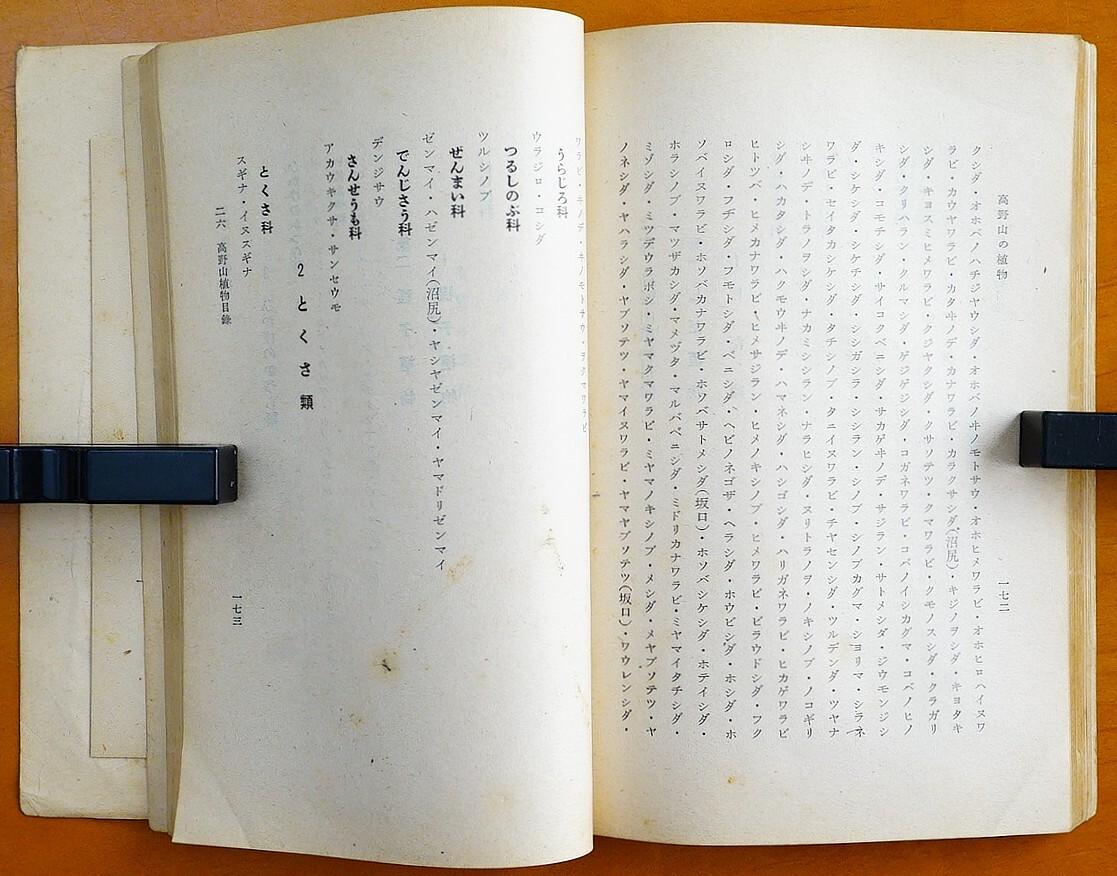 高野山の植物
一七二
クシダ・オホバノハチジヤウシダ・オホバノヰノモトサウ・オホヒメワラビ・オホヒロハイヌワ
ラビ・カウヤワラビ・カタヰノデ・カナワラビ・カラクサシダ(沼尻)・キジノヲシダ・キヨタキ
シダ・キヨスミヒメワラビ・クジヤクシダ・クサソテツ・クマワラビ・クモノスシダ・クラガリ
シダ・クリハラン・クルマシダ・ゲジゲジシダ・コガネワラビ・コバノイシカグマ・コバノヒノ
キシダ・コモチシダ・サイコクベニシダ・サカゲヰノデ・サジラン・サトメシダ・ジウモンジシ
ダ・シケシダ・シケチシダ・シシガシラ・シシラン・シノブ・シノブカグマ・シヨリマ・シラネ
ワラビ・セイタカシケシダ・タチシノブ・タニイヌワラビ・チヤセンシダ・ツルデンダ・ツヤナ
シヰノデ・トラノヲシダ・ナカミシシラン・ナラヒシダ・ヌリトラノヲ・ノキシノブ・ノコギリ
シダ・ハカタシダ・ハクモウヰノデ・ハマネシダ・ハシゴシダ・ハリガネワラビ・ヒカゲワラビ
ヒトツバ・ヒメカナワラビ・ヒメサジラン・ヒメノキシノブ・ヒメワラビ・ビラウドシダ・フク
ロシダ・フヂシダ・フモトシダ・ベニシダ・ヘビノネゴザ・ヘラシダ・ホウビシダ・ホシダ・ホ
ソバイヌワラビ・ホソバカナワラビ・ホソバサトメシダ(坂口)・ホソバシケシダ・ホテイシダ・
ホラシノブ・マツザカシダ・マメヅタ・マルバベニシダ・ミドリカナワラビ・ミヤマイタチシダ・
ミゾシダ・ミツデウラボシ・ミヤマクマワラビ・ミヤマノキシノブ・メシダ・メヤブソテツ・ヤ
ノネシダ・ヤハラシダ・ヤブソテツ・ヤマイヌワラビ・ヤマヤブソテツ(坂口)・ワウレンシダ・
ワラビ・キノデ・キノモトサウ・ヲクマワラビ
うらじろ科
ウラジロ・コシダ
つるしのぶ科
ツルシノブ
ぜんまい科
ゼンマイ・ハゼンマイ(沼尻)・ヤシヤゼンマイ・ヤマドリゼンマイ
でんじさう科
デンジサウ
さんせうも科
アカウキクサ・サンセウモ
2 とくさ類
とくさ科
スギナ・イヌスギナ
二六 高野山植物目錄
一七三